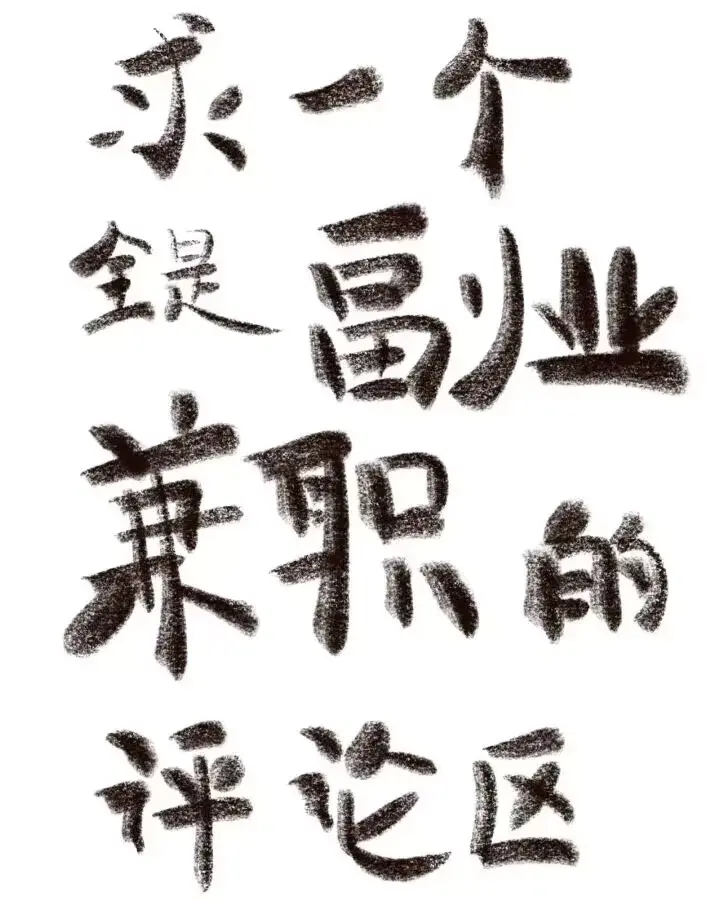 求一个
全是副业
兼职的
评论区